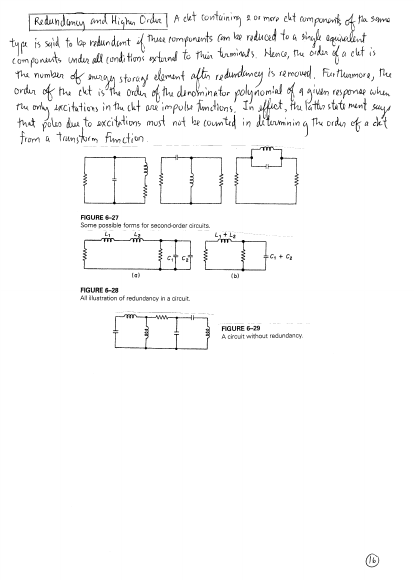 Redundency and Higher Order A ckt containing 2 or more ckt components of the same
type is said to be redundent if three components can be reduced to a single equivelent
components under all conditions external to their terminals. Hence, the order of a ckt is
the number of energy storage element after redundancy is removed. Furthurmore, the
order of the ckt is the order of the denominator polynomial of a given response when
the only excitations in the ckt are impulse functions. In effect, the latter statement say
that poles due to excitations must not be counted in determining the order of a ckt
from a transform function.
FIGURE 6–27
Some possible forms for second-order circuits.
L1 L2 C1 C2 L1 + L2 C1 + C2
(a) (b)
FIGURE 6–28
All illustration of redundancy in a circuit.
FIGURE 6–29
A circuit without redundancy.
16